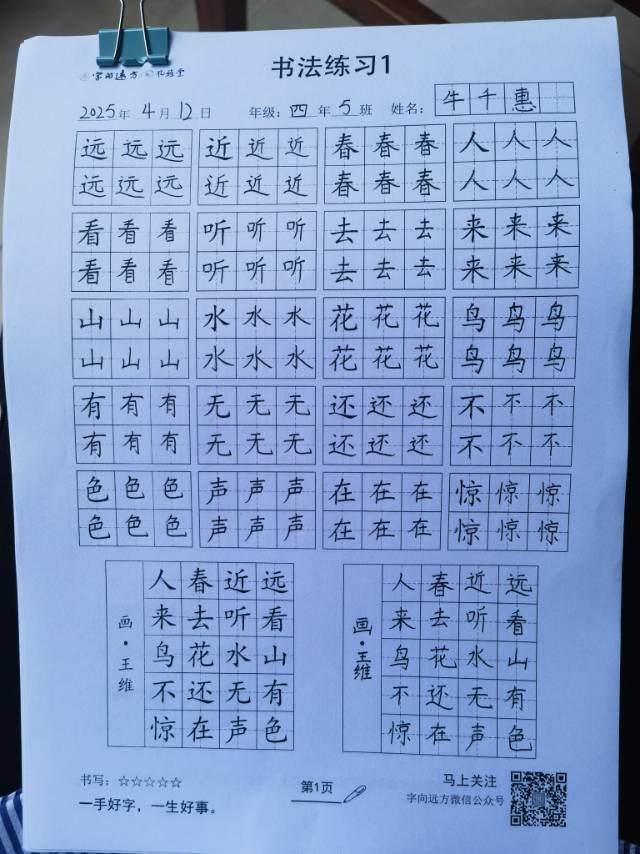 字向远方
书法练习1
2025年4月12日 年级：四年5班 姓名：牛千惠
远远远 近近近 春春春 人人人
远远远 近近近 春春春 人人人
看看看 听听听 去去去 来来来
看看看 听听听 去去去 来来来
山山山 水水水 花花花 鸟鸟鸟
山山山 水水水 花花花 鸟鸟鸟
有有有 无无无 还还还 不不不
有有有 无无无 还还还 不不不
色色色 声声声 在在在 惊惊惊
色色色 声声声 在在在 惊惊惊
远看山有色
近听水无声
春去花还在
人来鸟不惊
画·王维
远看山有色
近听水无声
春去花还在
人来鸟不惊
画·王维
书写：☆☆☆☆☆
一手好字，一生好事。
第1页
马上关注
字向远方微信公众号